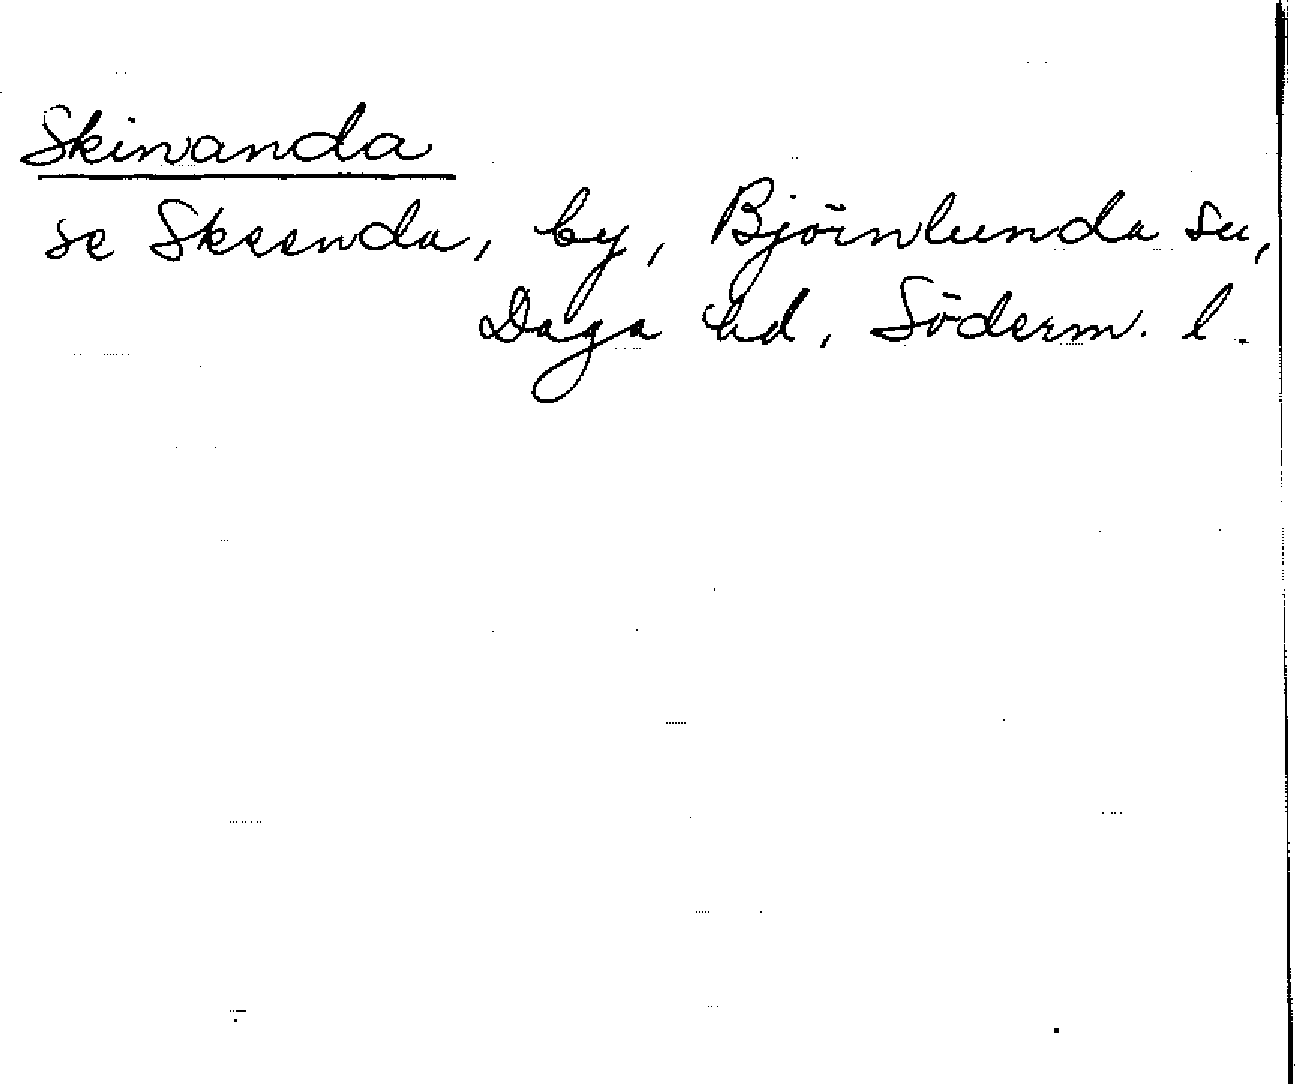 Skinanda
se Skeenda, by, Björnlunda sn,
Daga hd, Söderm. l.